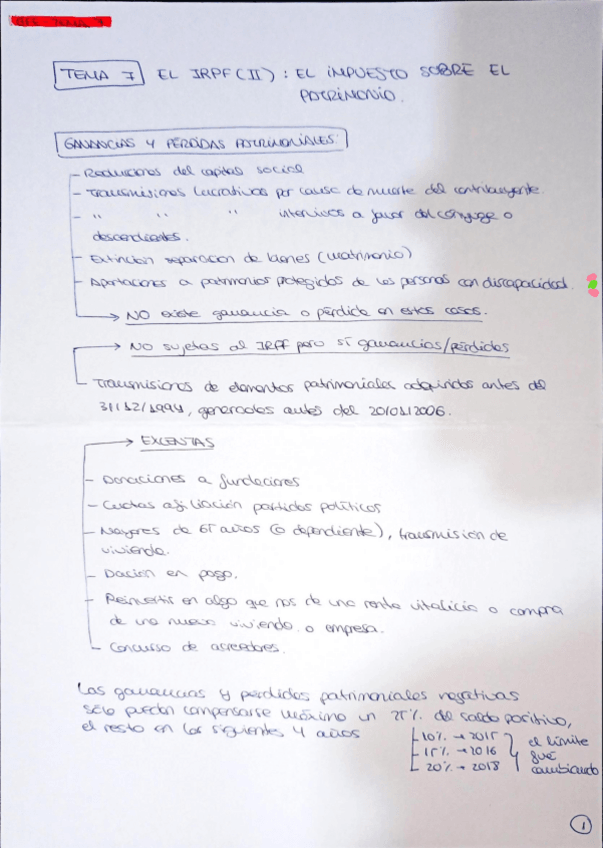 TEMA 7 EL IRPF (II) : EL IMPUESTO SOBRE EL
PATRIMONIO.
GANANCIAS Y PÉRDIDAS PATRIMONIALES:
- Reducciones del capital social
- Transmisiones lucrativas por causa de muerte del contribuyente.
- " " " intervivos a favor del cónyuge o
descendientes.
- Extinción separación de bienes (matrimonio)
- Aportaciones a patrimonios protegidos de las personas con discapacidad.
→ NO existe ganancia o pérdida en estos casos.
→ NO sujetas al IRPF pero sí ganancias/pérdidas
Transmisiones de elementos patrimoniales adquiridos antes del
31/12/1994, generadas antes del 20/01/2006.
→ EXENTAS
- Donaciones a fundaciones
- Cuotas afiliación partidos políticos
- Mayores de 65 años (o dependiente), transmisión de
vivienda.
- Dación en pago.
- Reinvertir en algo que nos de una renta vitalicia o compra
de una nueva vivienda o empresa.
- Concurso de acreedores.
Las ganancias y pérdidas patrimoniales negativas
sólo pueden compensarse máximo un 25% del saldo positivo,
el resto en los siguientes 4 años
10% → 2015
15% → 2016
20% → 2018
el límite
fue
cambiando
1